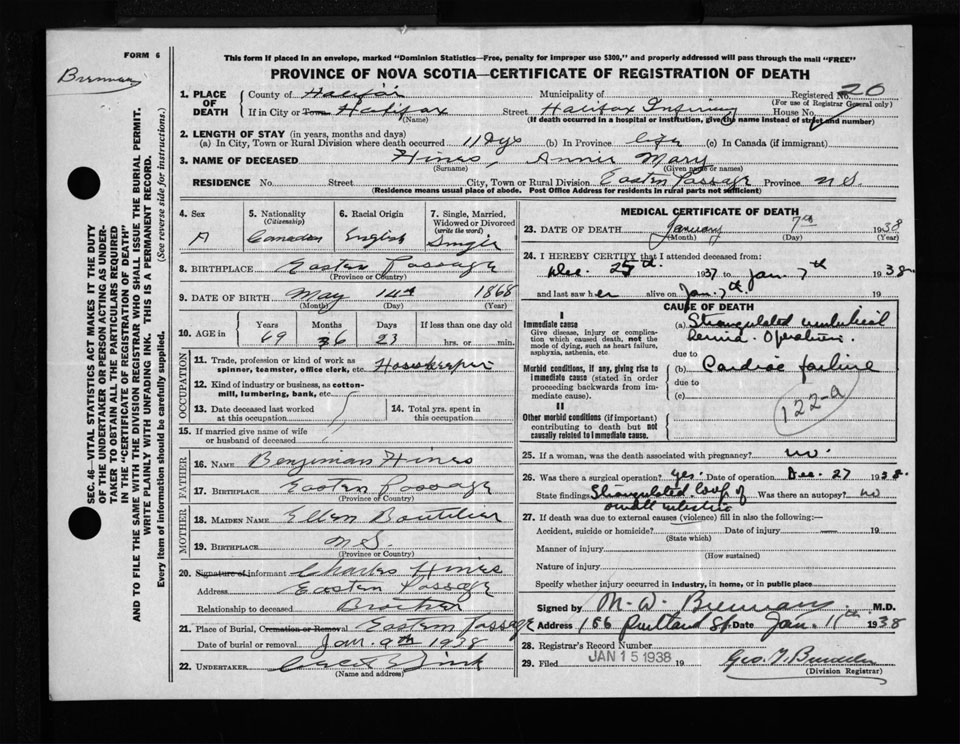 FORM 6
Brennan
This form if placed in an envelope, marked "Dominion Statistics—Free, penalty for improper use $300," and properly addressed will pass through the mail "FREE"
PROVINCE OF NOVA SCOTIA—CERTIFICATE OF REGISTRATION OF DEATH
SEC. 46—VITAL STATISTICS ACT MAKES IT THE DUTY
OF THE UNDERTAKER OR PERSON ACTING AS UNDER-
TAKER TO OBTAIN ALL THE PARTICULARS REQUIRED
IN THE "CERTIFICATE OF REGISTRATION OF DEATH"
AND TO FILE THE SAME WITH THE DIVISION REGISTRAR WHO SHALL ISSUE THE BURIAL PERMIT.
WRITE PLAINLY WITH UNFADING INK. THIS IS A PERMANENT RECORD.
Every item of information should be carefully supplied. (See reverse side for instructions.)
1. PLACE OF DEATH County of Halifax Municipality of Registered No. 20
(For use of Registrar General only)
If in City or Town Halifax Street Halifax Infirmary House No.
(Name) (If death occurred in a hospital or institution, give its name instead of street and number)
2. LENGTH OF STAY (in years, months and days)
(a) In City, Town or Rural Division where death occurred 11 dys (b) In Province life (c) In Canada (if immigrant)
3. NAME OF DECEASED Hines, Annie Mary
(Surname) (Given name or names)
RESIDENCE No. Street City, Town or Rural Division Eastern Passage Province N.S.
(Residence means usual place of abode. Post Office Address for residents in rural parts not sufficient)
4. Sex 5. Nationality (Citizenship) 6. Racial Origin 7. Single, Married, Widowed or Divorced (write the word)
Canadian English Single
8. BIRTHPLACE Eastern Passage
(Province or Country)
9. DATE OF BIRTH May 14th 1868
(Month) (Day) (Year)
10. AGE in Years Months Days If less than one day old
69 6 23 hrs. or min.
OCCUPATION
11. Trade, profession or kind of work as spinner, teamster, office clerk, etc. Housekeeper
12. Kind of industry or business, as cotton-mill, lumbering, bank, etc.
13. Date deceased last worked at this occupation 14. Total yrs. spent in this occupation
15. If married give name of wife or husband of deceased
FATHER
16. NAME Benjiman Hines
17. BIRTHPLACE Eastern Passage
(Province or Country)
MOTHER
18. MAIDEN NAME Ellen Boutilier
19. BIRTHPLACE N.S.
(Province or Country)
20. Signature of informant Charles Hines
Address Eastern Passage
Relationship to deceased Brother
21. Place of Burial, Cremation or Removal Eastern Passage
Date of burial or removal Jan. 9th 1938
22. UNDERTAKER
(Name and address)
MEDICAL CERTIFICATE OF DEATH
23. DATE OF DEATH January 7th 1938
(Month) (Day) (Year)
24. I HEREBY CERTIFY that I attended deceased from:
Dec. 25th. 1937 to Jan. 7th 1938
and last saw her alive on Jan. 7th. 19
CAUSE OF DEATH
I
Immediate cause
Give disease, injury or complication which caused death, not the mode of dying, such as heart failure, asphyxia, asthenia, etc.
(a) Strangulated umbilical hernia. Operation.
due to
Morbid conditions, if any, giving rise to immediate cause (stated in order proceeding backwards from immediate cause).
(b) Cardiac failure
due to
(c)
122-a
II
Other morbid conditions (if important) contributing to death but not causally related to immediate cause.
25. If a woman, was the death associated with pregnancy? no.
26. Was there a surgical operation? yes. Date of operation Dec. 27 1938.
State findings Strangulated loop of small intestine Was there an autopsy? no
27. If death was due to external causes (violence) fill in also the following:—
Accident, suicide or homicide? Date of injury 19
(State which)
Manner of injury
(How sustained)
Nature of injury
Specify whether injury occurred in industry, in home, or in public place
Signed by M. D. Brennan M.D.
Address 186 Portland St. Date Jan. 11th 1938
28. Registrar's Record Number
29. Filed JAN 15 1938 19
(Division Registrar)